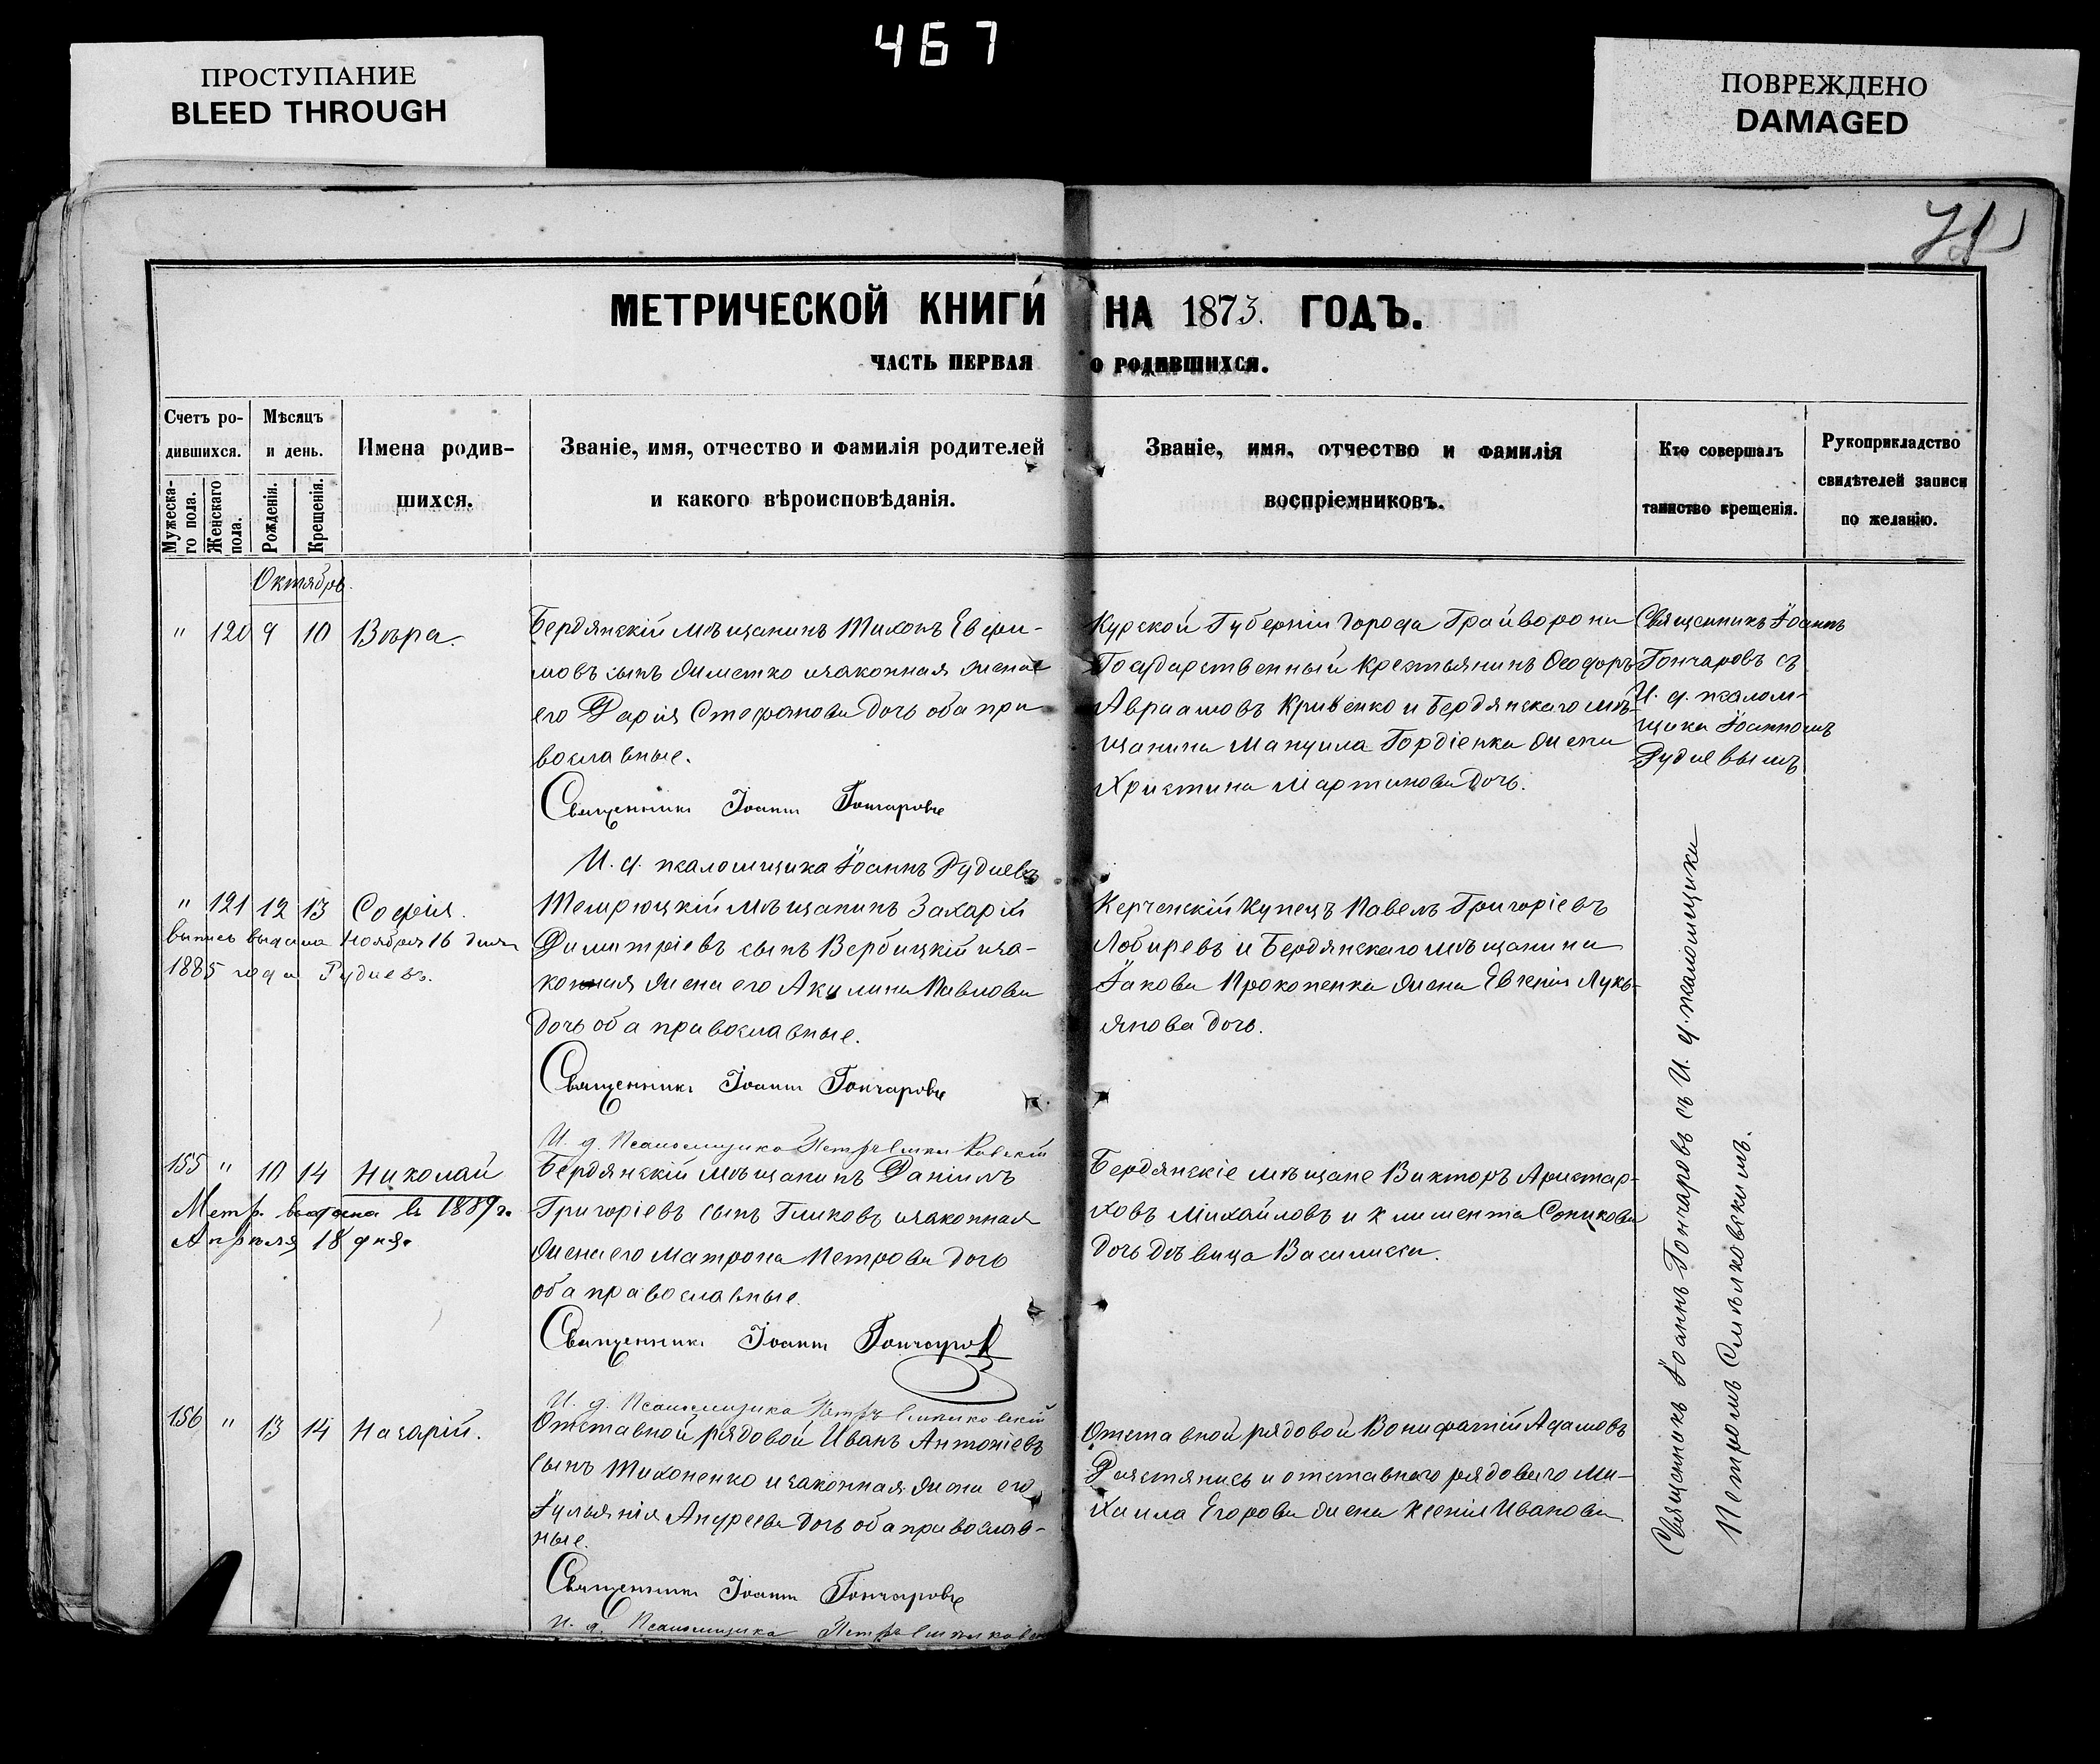 467
ПРОСТУПАНИЕ
BLEED THROUGH
ПОВРЕЖДЕНО
DAMAGED
МЕТРИЧЕСКОЙ КНИГИ НА 1873. ГОДЪ.
ЧАСТЬ ПЕРВАЯ О РОДИВШИХСЯ.
Счетъ ро-
дившихся.
Мужеска-
го пола.
Женскаго
пола.
Мѣсяцъ
и день.
Рожденія.
Крещенія.
Имена родив-
шихся.
Званіе, имя, отчество и фамилія родителей
и какого вѣроисповѣданія.
Званіе, имя, отчество и фамилія
воспріемниковъ.
Кто совершалъ
таинство крещенія.
Рукоприкладство
свидѣтелей записи
по желанію.
Октябрь.
" 120 9 10 Вѣра.
Бердянскій мѣщанинъ Тихонъ Евфи-
мовъ сынъ и законная жена
его Дарія Стефанова дочь оба пра
вославные.
Священникъ Іоаннъ Гончаровъ
И. д. псаломщика Іоаннъ Рудиевъ
Курской Губерніи города Грайворона
Государственный крестьянинъ Ѳеодоръ
Авраамовъ Кривенко и Бердянскаго мѣ-
щанина Мануила Гордіенка жена
Христина Мартинова дочь.
Священникъ Іоаннъ
Гончаровъ съ
И. д. псалом-
щика Іоанномъ
Рудиевымъ
" 121 12 13 Софія.
выпись выдана Ноября 16 дня
1885 года Рудиевъ.
Темрюцкій мѣщанинъ Захарій
Димитріевъ сынъ Вербицкій и за-
конная жена его Акулина Павлова
дочь оба православные.
Священникъ Іоаннъ Гончаровъ
И. д. Псаломщика Петръ
Керченскій купецъ Павелъ Григоріевъ
Лобыревъ и Бердянскаго мѣщанина
Іакова Прокопенка жена Евгенія Лукь-
янова дочь.
155 " 10 14 Николай
Метр. выдана в 1889 г.
Апрѣля 18 дня.
Бердянскій мѣщанинъ Даніилъ
Григоріевъ сынъ Гликовъ и законная
жена его Матрона Петрова дочь
оба православные.
Священникъ Іоаннъ Гончаров
И. д. Псаломщика Петръ
Бердянскіе мѣщане Викторъ Аристар-
ховъ Михайловъ и Климента Соникова
дочь дѣвица Василиса.
156 " 13 14 Назарій.
Отставной рядовой Иванъ Антоніевъ
сынъ Тихоненко и законная жена его
Іульянія Андреева дочь оба православ-
ные.
Священникъ Іоаннъ Гончаровъ
И. д. Псаломщика Петръ
Отставной рядовой Вонифатій Адамовъ
и отставнаго рядоваго Ми-
хаила Егорова жена Ксенія Иванова
Священникъ Іоаннъ Гончаровъ съ И. д. псаломщика
Петромъ